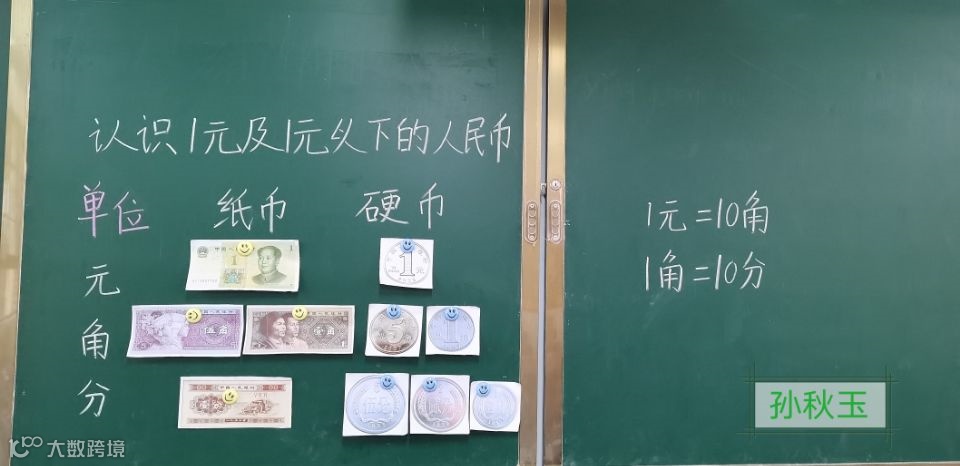 认识1元及1元以下的人民币
单位 纸币 硬币
元
角
分
1元=10角
1角=10分
伍角
壹角
1
1元
5
1
孙秋玉
大数跨境